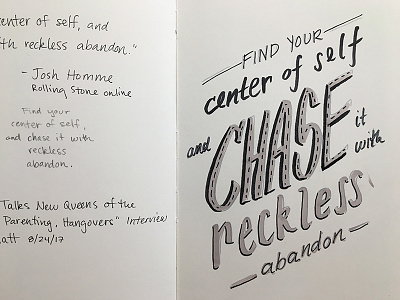 center of self, and
with reckless abandon."
- Josh Homme
Rolling Stone online
Find your
center of self,
and chase it with
reckless
abandon.
Talks New Queens of the
Parenting, Hangovers" Interview
8/24/17
FIND YOUR
center of self
and CHASE it
with
reckless
abandon